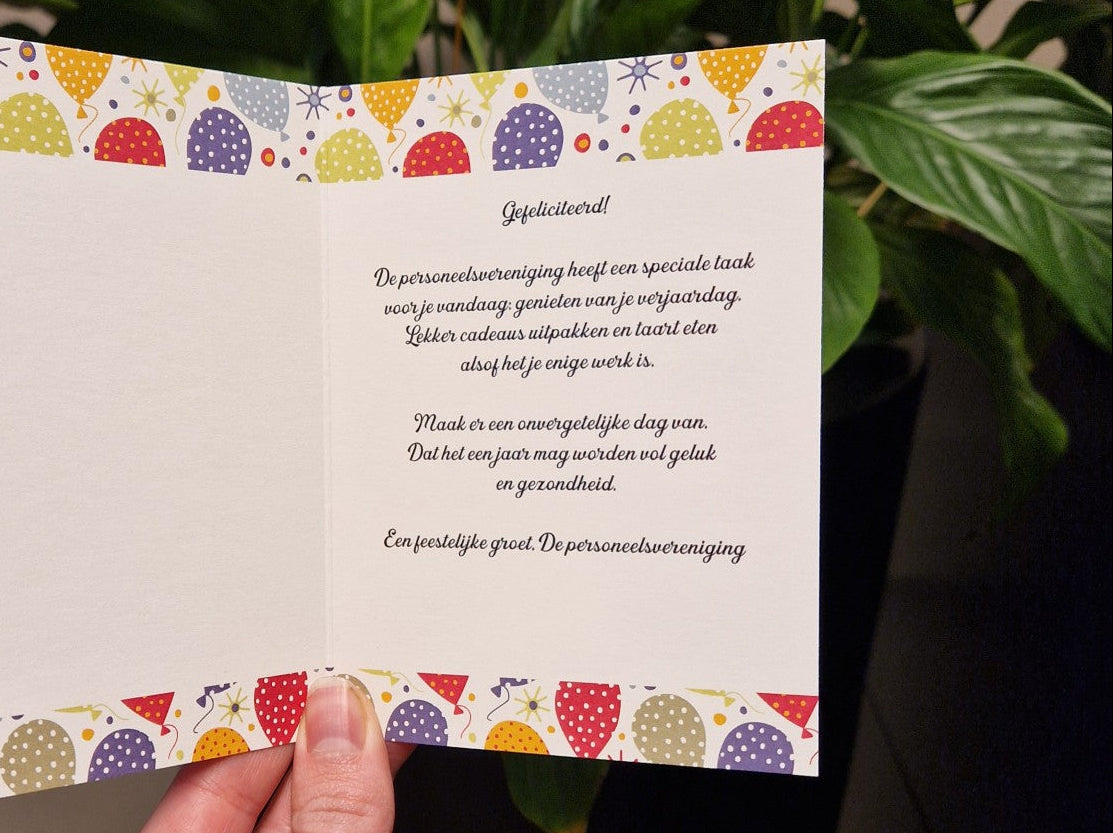 Gefeliciteerd!
De personeelsvereniging heeft een speciale taak
voor je vandaag: genieten van je verjaardag.
Lekker cadeaus uitpakken en taart eten
alsof het je enige werk is.
Maak er een onvergetelijke dag van.
Dat het een jaar mag worden vol geluk
en gezondheid.
Een feestelijke groet. De personeelsvereniging